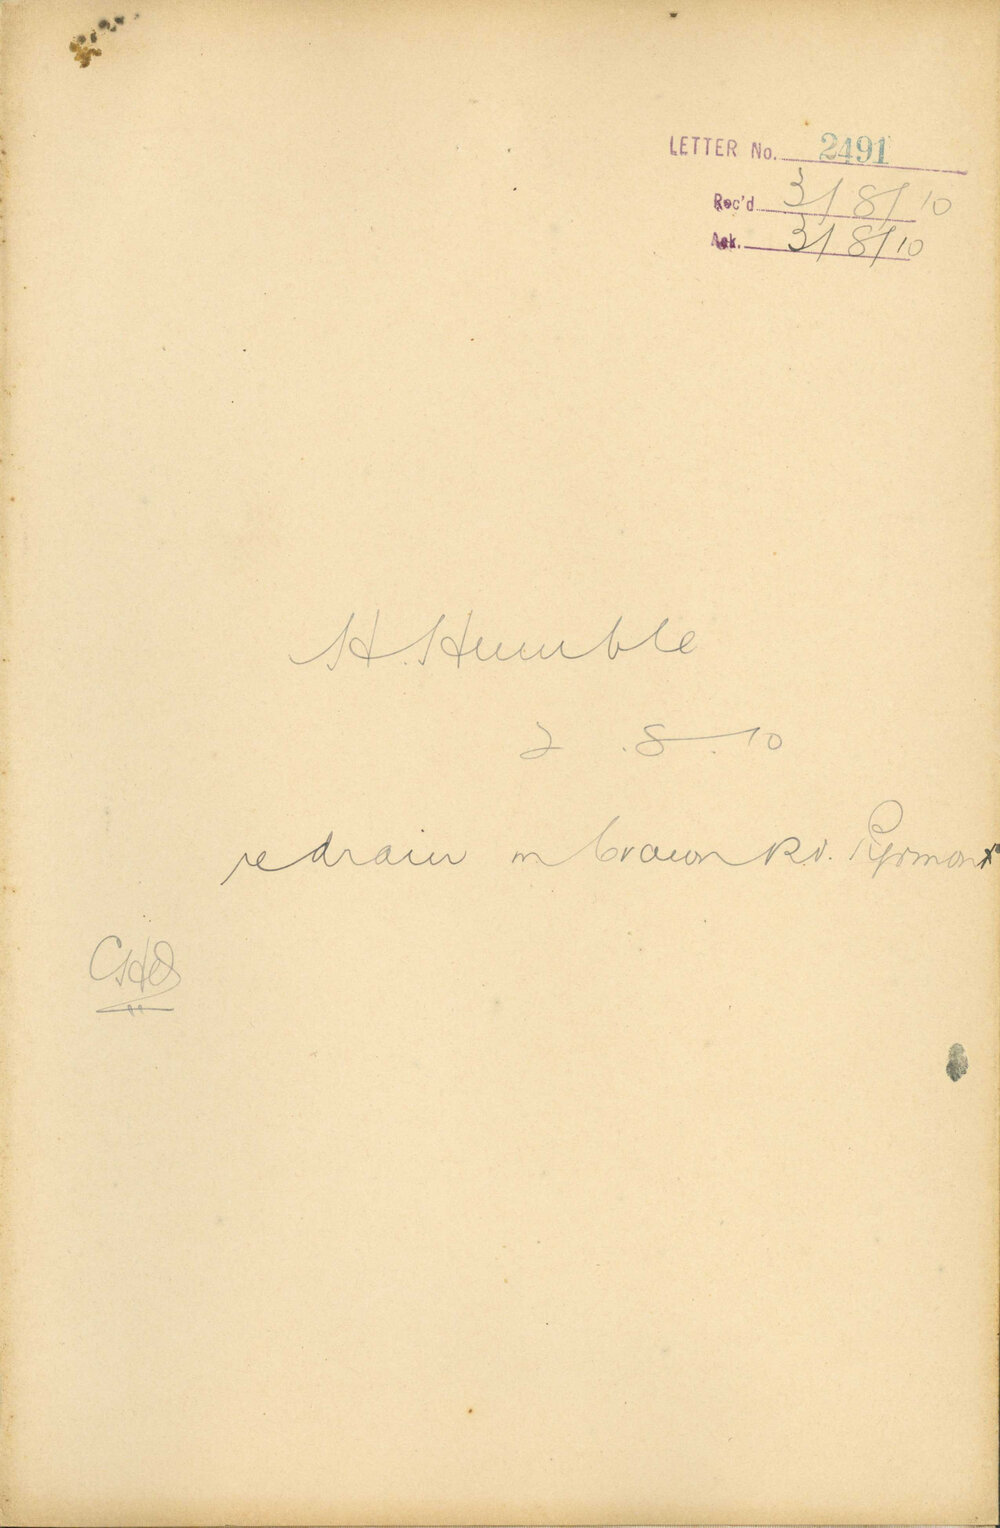 LETTER No. 2491
Rec'd 3/8/10
Ack. 3/8/10
H. Humble
2.8.10
re drain in Crown Rd. Pyrmont